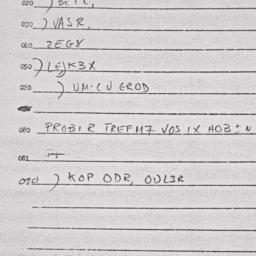 020 ) BETL,
030 ) VASR,
040 ZEG8
050 ) LEJK3X
050 ) UM·CU EROD
080 PROBIR TREFM7 VOS IX HOB:N
081
090 ) KOP ODR, OUL3R